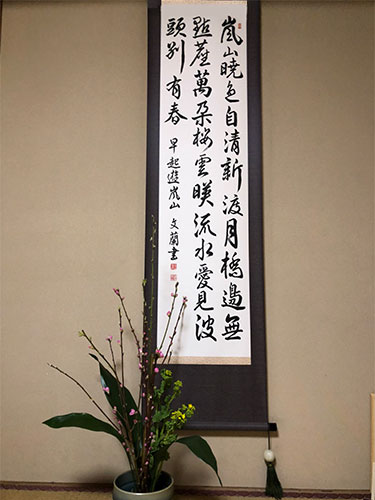 嵐山暁色自清新渡月橋邉無
點塵萬朶桜雲映流水愛見波
頭別有春 早起遊嵐山 文蘭書